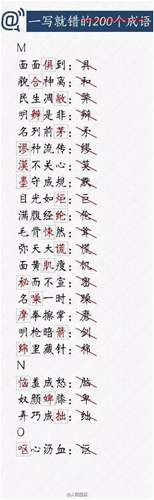 一写就错的200个成语
M
面面俱到：具
貌合神离：和
民生凋敝：弊
明辨是非：辩
名列前茅：矛
谬种流传：缪
漠不关心：莫
墨守成规：
目光如炬：巨
满腹经纶：伦
毛骨悚然：
弥天大谎：慌
面黄肌瘦：饥
秘而不宣：密
名噪一时：
摩拳擦掌：磨
明枪暗箭：剑
绵里藏针：棉
N
恼羞成怒：脑
奴颜婢膝：卑
弄巧成拙：绌
O
呕心沥血：
@人民日报